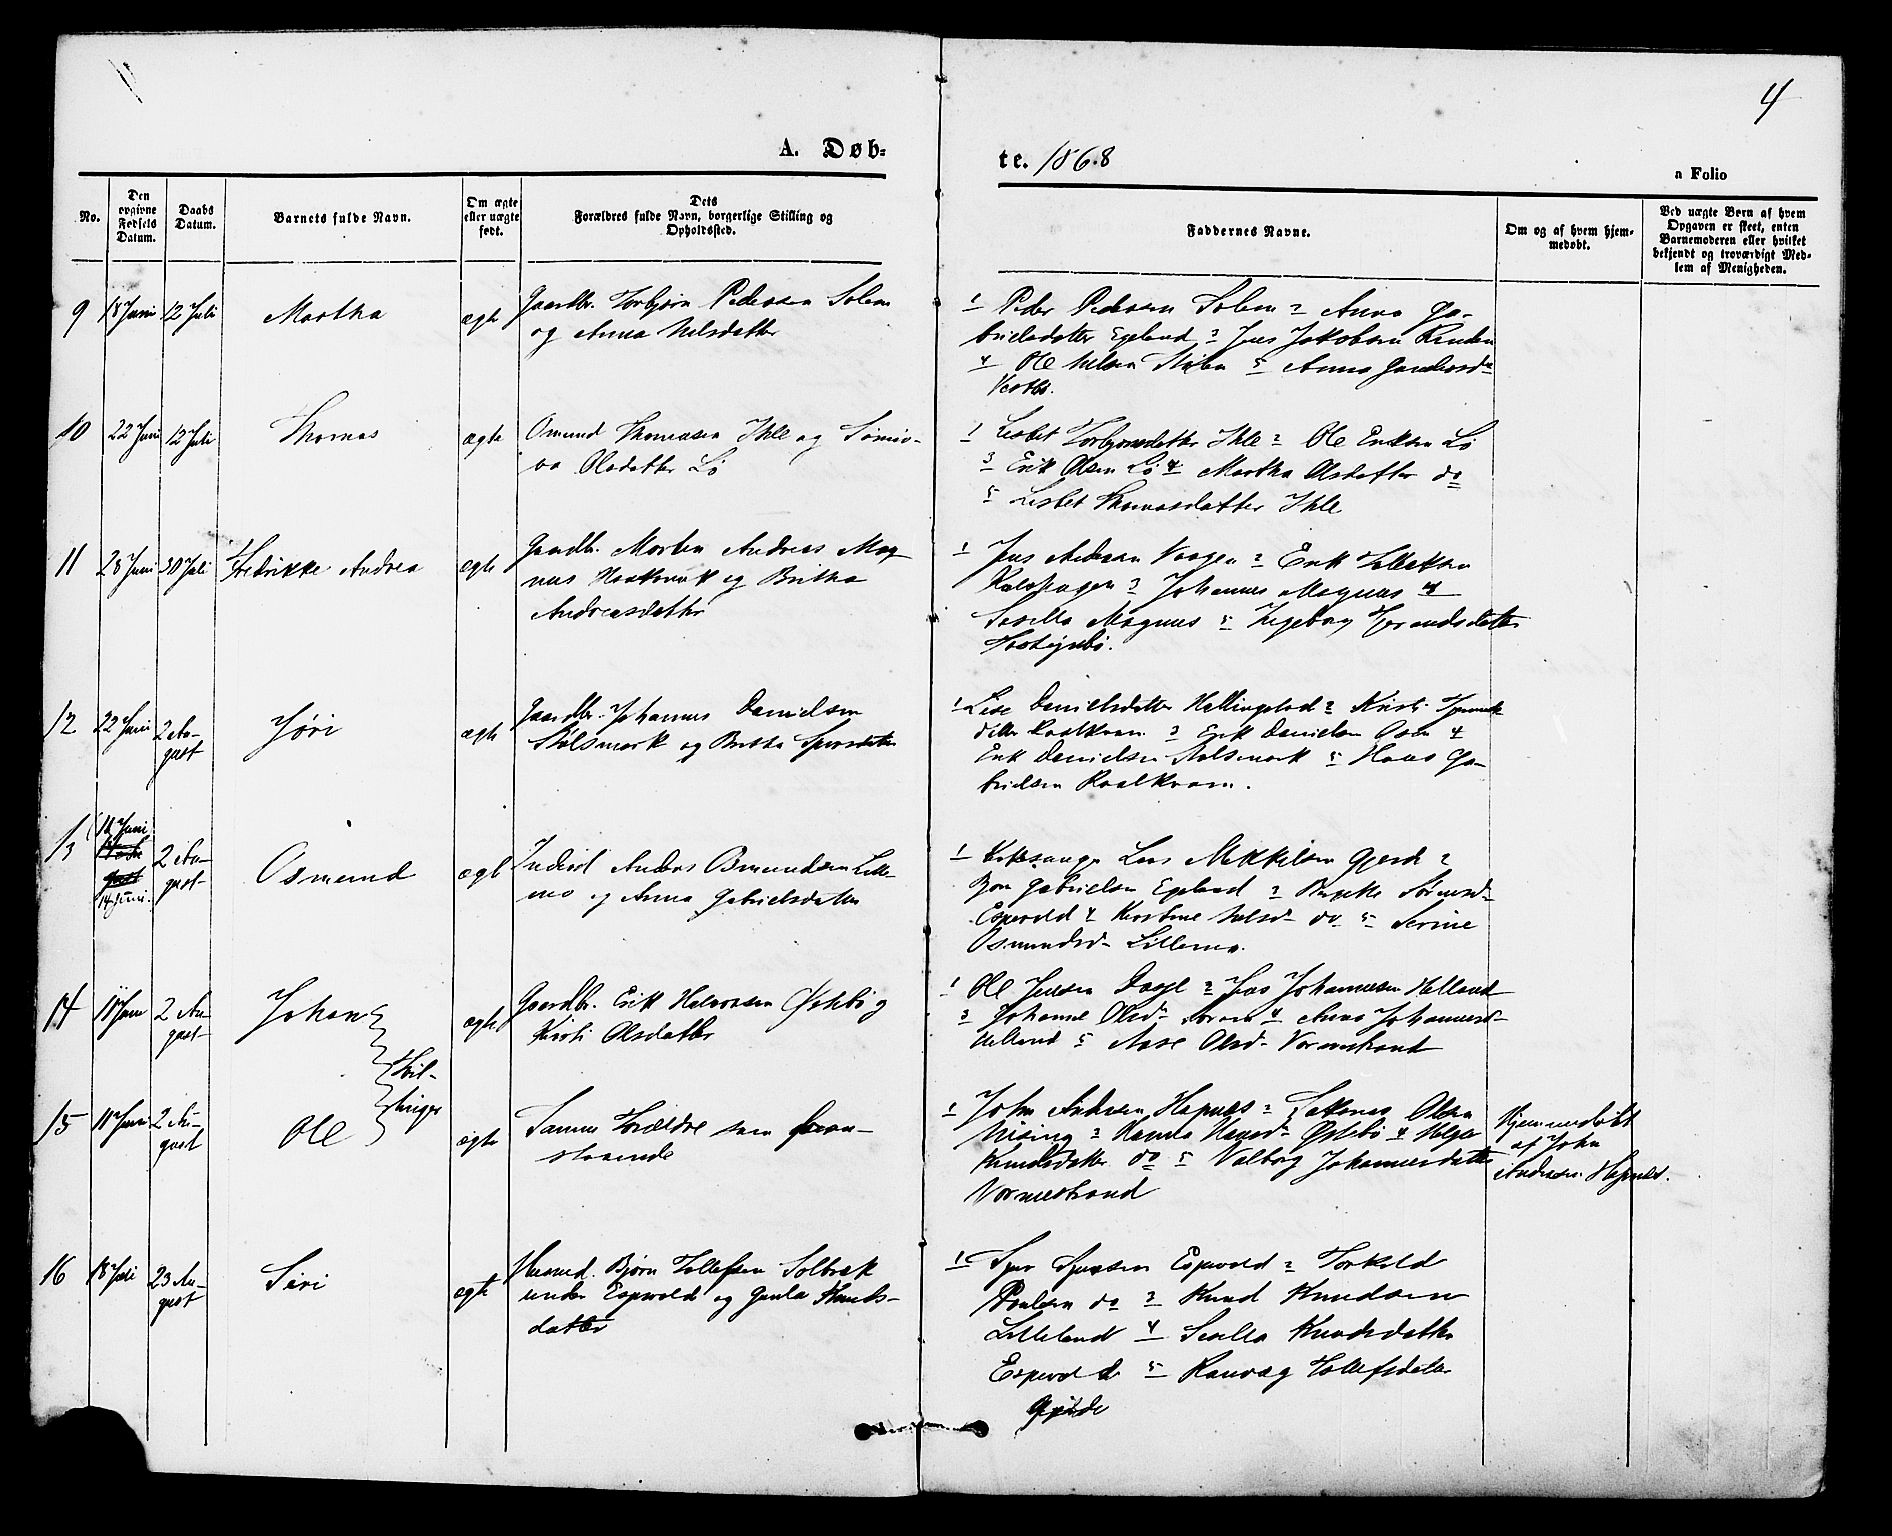 4
A. Døb-
te. 1868
a Folio
No.
Den
opgivne
Fødsels
Datum.
Daabs
Datum.
Barnets fulde Navn.
Om ægte
eller uægte
født.
Dets
Forældres fulde Navn, borgerlige Stilling og
Opholdssted.
Faddernes Navne.
Om og af hvem hjem-
medøbt.
Ved uægte Børn af hvem
Opgaven er skeet, enten
Barnemoderen eller hvilket
bekjendt og troværdigt Med-
lem af Menigheden.
9
18 Juni
12 Juli
Martha
ægte
Gaardbr. Torbjørn Pedersen Solem
og Anna Nilsdatter
1 Peder Pedersen Solem 2 Anna Ga-
brielsdatter Egeland 3 Jens Jakobsen
4 Ole Nilsen 5 Anna
10
22 Juni
12 Juli
Thomas
ægte
Osmund Thomasen Ihle og Sønniv-
va Olsdatter Lø
1 Lisbet Torbjørnsdatter Ihle 2 Ole Eriksen Lø
3 Erik Olsen Lø 4 Martha Olsdatter do
5 Lisbet Thomasdatter Ihle
11
28 Juni
30 Juli
Fredrikke Andrea
ægte
Gaardbr. Morten Andreas Mag-
nus og Britha
Andreasdatter
1 Jens Andersen Vaagen 2 Erik Tollefsen
3 Johannes Magnus 4
Sesilla Magnus 5 Ingeborg
12
22 Juni
2 Au-
gust
Jøri
ægte
Gaardbr. Johannes Danielsen
Stølsmark og Britha Sjursdatter
1 Lise Danielsdatter 2 Kristi
datter Raalkvam 3 Erik Danielsen Osen 4
Erik Danielsen Stølsmark 5 Hans Ga-
brielsen Raalkvam.
13
14 Juni.
2 Au-
gust
Osmund
ægte
Inderst Anders Osmundsen Lille-
mo og Anna Gabrielsdatter
1 Kirkesanger Lars Mikkelsen Gjerde 2
Bjørn Gabrielsen Egeland 3 Birgitte
Espevold 4 Kirstine Nilsd. do 5 Serine
Osmundsd. Lillemo.
14
11 Juni
2 Au-
gust
Johan
Tvil-
linger
ægte
Gaardbr. Erik Halvorsen Østebø og
Kirsti Olsdatter
1 Ole Jensen 2 Jens Johannesen Helland
3 Johanne Olsd. 4 Anna Johannesd.
Helland 5 Aase Olsd. Vormestrand
15
11 Juni
2 Au-
gust
Ole
ægte
Samme Forældre som foran-
staaende
1 John Andersen Hapnes 2 Olsen
3 Hansd. Østebø 4 Helga
Knudsdatter do 5 Valborg Johannesdatter
Vormestrand
Hjemmedøbt
af John
Andersen Hapnes.
16
18 Juli
23 Au-
gust
Siri
ægte
Husmd. Bjørn Tollefsen Solbrek
under Espevold og Gunla Knuds-
datter
1 Sjur Sjursen Espevold 2 Torkild
Poulsen do 3 Knud Knudsen
Lilleland 4 Sesilla Knudsdatter
Espevold 5 Ranvæg Tollefsdatter